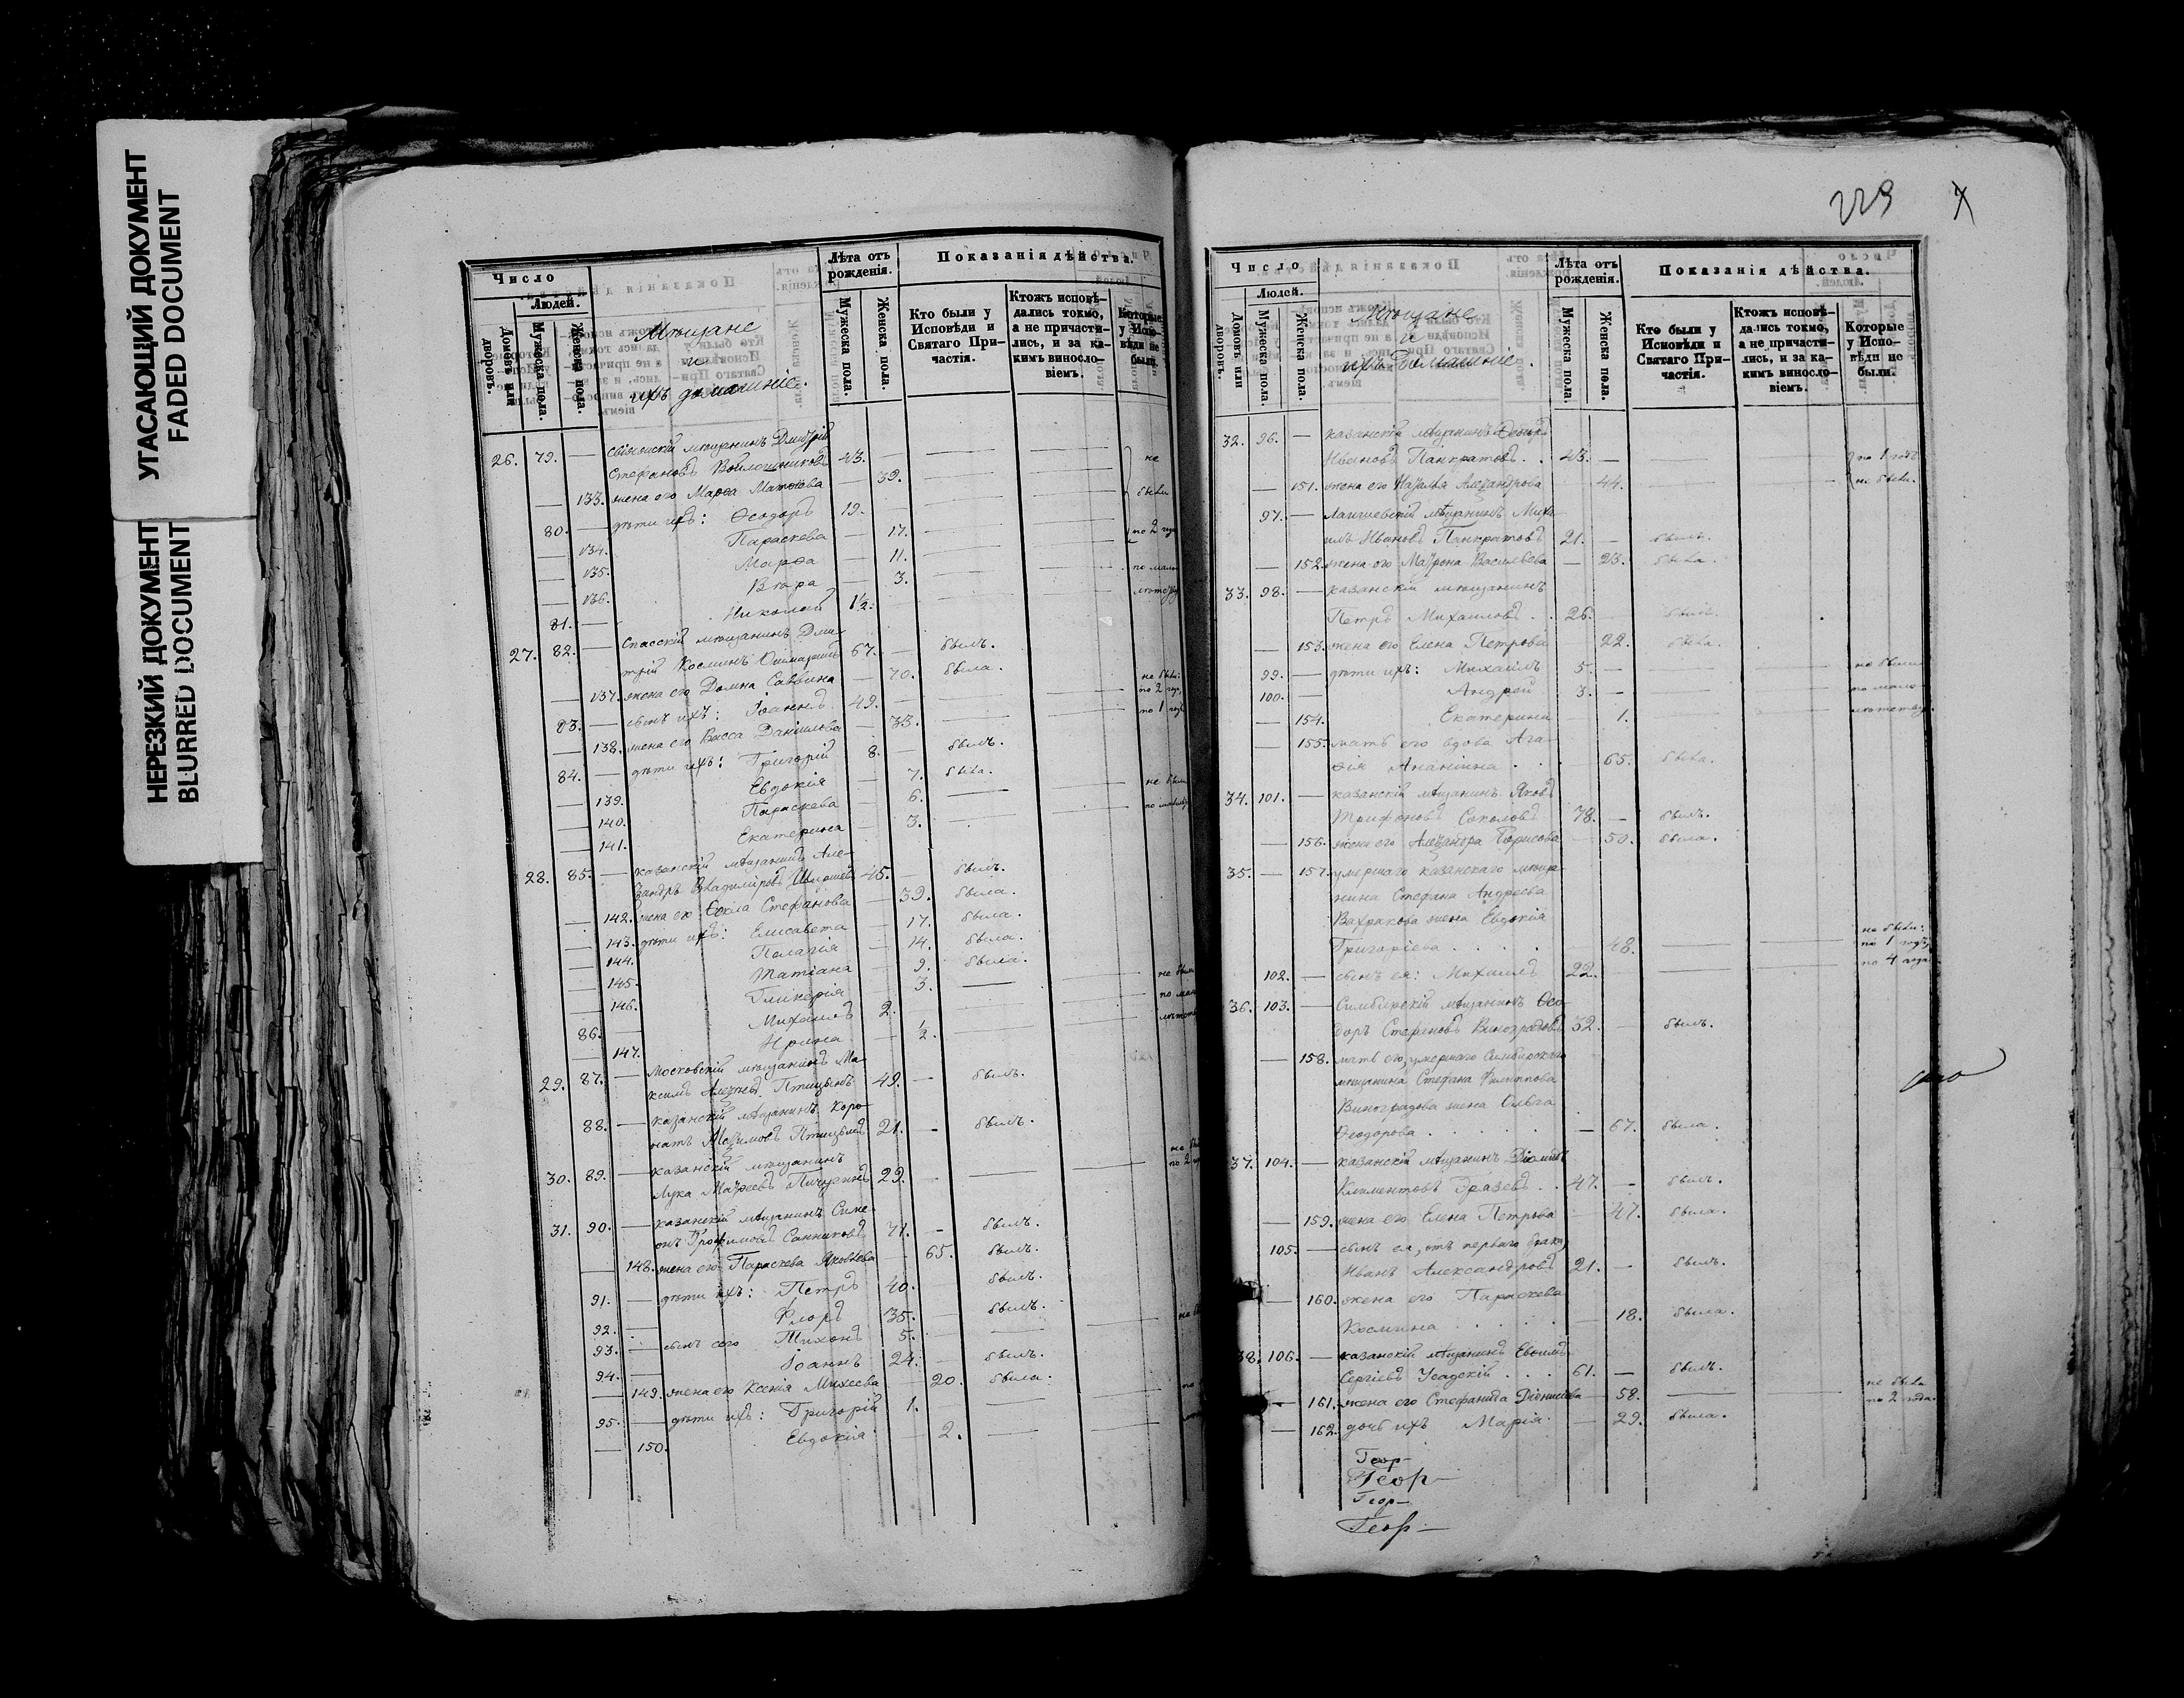 УГАСАЮЩИЙ ДОКУМЕНТ
FADED DOCUMENT
НЕРЕЗКИЙ ДОКУМЕНТ
BLURRED DOCUMENT
Число
Людей.
Домовъ или дворовъ.
Мужеска пола.
Женска пола.
Мѣщане
и
ихъ домашніе.
Лѣта отъ рожденія.
Мужеска пола.
Женска пола.
Показанія дѣйства.
Кто были у Исповѣди и Святаго Причастія.
Ктожъ исповѣдались токмо, а не причастились, и за какимъ винословіемъ.
Которые у Исповѣди не были.
26. 79. — Свіяжскій мѣщанинъ Дмитрій
Стефановъ Войлошниковъ 43. — не
— 133. жена его Марѳа Матвѣева — 39. были
80. — дѣти ихъ: Ѳеодоръ 19.
— 134. Параскева — 17. по 2 года
— 135. Марѳа 11.
— 136. Вѣра — 3. по мало
81. — Николай 1½.
27. 82. — Спасскій мѣщанинъ Дми-
трій Косминъ 67. — былъ.
— 137. жена его Домна Саввина — 70. была.
83. — сынъ ихъ: Іоаннъ 49. по 2 года
— 138. жена его Васса Даніилова 33. по 1 году
84. — дѣти ихъ: Григорій 8. — былъ.
— 139. Евдокія 7. была.
— 140. Параскева — 6. не были
— 141. Екатерина 3.
28. 85. — казанскій мѣщанинъ Але-
ксандръ Владиміровъ 45. — былъ.
— 142. жена его Ѳекла Стефанова — 39. была.
— 143. дѣти ихъ: Елисавета 17. была.
— 144. Пелагія — 14. была.
— 145. Татіана 9. была.
— 146. Гликерія 3. — не были
86. — Михаилъ 2. по мало
— 147. Ирина — ½.
29. 87. — Московскій мѣщанинъ Ма-
ксимъ Алексѣевъ Птицынъ 49. — былъ.
88. — казанскій мѣщанинъ Коро-
натъ Максимовъ Птицынъ 21. — былъ.
30. 89. — казанскій мѣщанинъ
Лука Матѳеевъ Пичугинъ 29. —
31. 90. — казанскій мѣщанинъ Симе-
онъ Трофимовъ Санниковъ 71. — былъ.
— 148. жена его Параскева Яковлева 65. былъ.
91. — дѣти ихъ: Петръ 40. былъ.
92. — Флоръ 35. — былъ.
93. — сынъ сего Тихонъ 5. —
94. — Іоаннъ 24. — былъ.
— 149. жена его Ксенія Михеева 20. была.
95. — дѣти ихъ: Григорій 1. —
— 150. Евдокія 2. —
229
Число
Людей.
Домовъ или дворовъ.
Мужеска пола.
Женска пола.
Мѣщане
и
ихъ домашніе.
Лѣта отъ рожденія.
Мужеска пола.
Женска пола.
Показанія дѣйства.
Кто были у Исповѣди и Святаго Причастія.
Ктожъ исповѣдались токмо, а не причастились, и за какимъ винословіемъ.
Которые у Исповѣди не были.
32. 96. — казанскій мѣщанинъ
Ивановъ Панкратовъ . . 43. — по 1 году
— 151. жена его Наталья Александрова 44. — не были.
97. — Лаишевскій мѣщанинъ Миха-
илъ Ивановъ Панкратовъ 21. — былъ.
— 152. жена его Матрона Васильева — 23. была.
33. 98. — казанскій мѣщанинъ
Петръ Михаиловъ . . 26. былъ.
— 153. жена его Елена Петрова 22. была.
99. — дѣти ихъ: Михаилъ 5. — не были
100. — Андрей 3. — по мало-
— 154. Екатерина 1. лѣтству.
— 155. мать его вдова Ага-
ѳія Ананіина . . . 65. была.
34. 101. — казанскій мѣщанинъ Яковъ
Трифоновъ Соколовъ 78. — былъ.
— 156. жена его Александра Борисова — 50. была.
35. — 157. умершаго казанскаго мѣща-
нина Стефана Андреева
Вахракова жена Евдокія
Григоріева . . . . — 48. — не была: по 1 году,
102. — сынъ ея: Михаилъ 22. по 4 года
36. 103. — Симбирскій мѣщанинъ Ѳео-
доръ Стефановъ Виноградовъ 32. — былъ.
— 158. мать его, умершаго Симбирскаго
мѣщанина Стефана Филиппова
Виноградова жена Ольга
Ѳеодорова . . . . . — 67. была.
37. 104. — казанскій мѣщанинъ Діомидъ
Климентовъ . . 47. — былъ.
— 159. жена его Елена Петрова 47. была.
105. — сынъ ея, отъ перваго брака,
Иванъ Александровъ 21. — былъ.
— 160. жена его Параскева
Космина . . . . . — 18. была.
38. 106. — казанскій мѣщанинъ Евѳимъ
Сергіевъ Усадскій . . . 61. — былъ.
— 161. жена его Стефанида Діонисіева — 58. — не была по 2 года.
— 162. дочь ихъ Марія — 29. была.
Геор-
Геор-
Геор-
Геор-